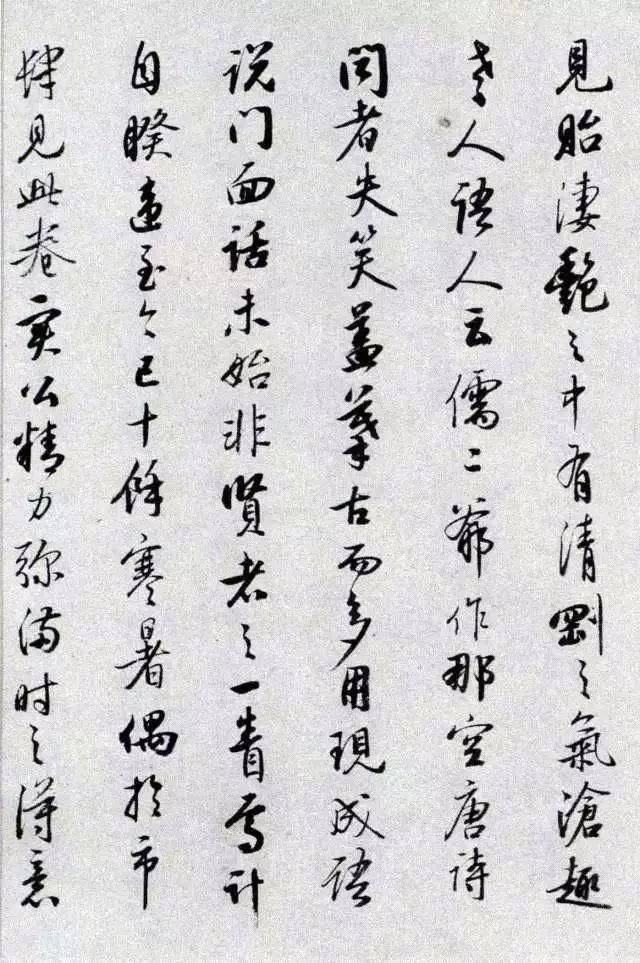 見貽淒艷之中有清剛之氣滄趣
老人語人云儒二爺作那空唐詩
問者失笑蓋摹古而多用現成語
说门面话未始非賢者之一眚焉计
自睽違至今已十餘寒暑偶於市
肆見此卷實公精力弥滿时之得意